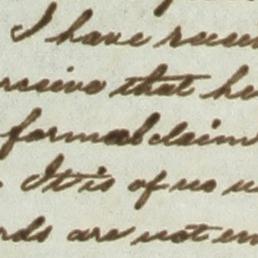 I have recei
rceive that he
formal claim
. It is of no u
rds are not en